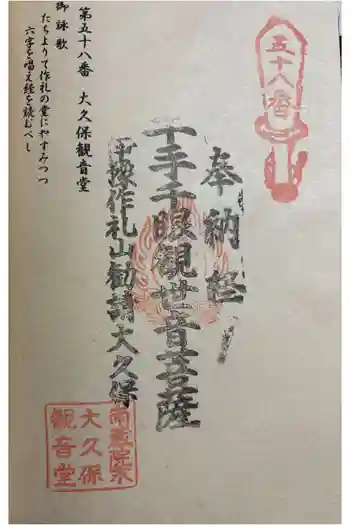 五十八番
奉納経
千手千眼観世音菩薩
作礼山勧請大久保
第五十八番 大久保観音堂
御詠歌
たちよりて作礼の堂にやすみつつ
六字を唱え経を読むべし
大久保
観音堂